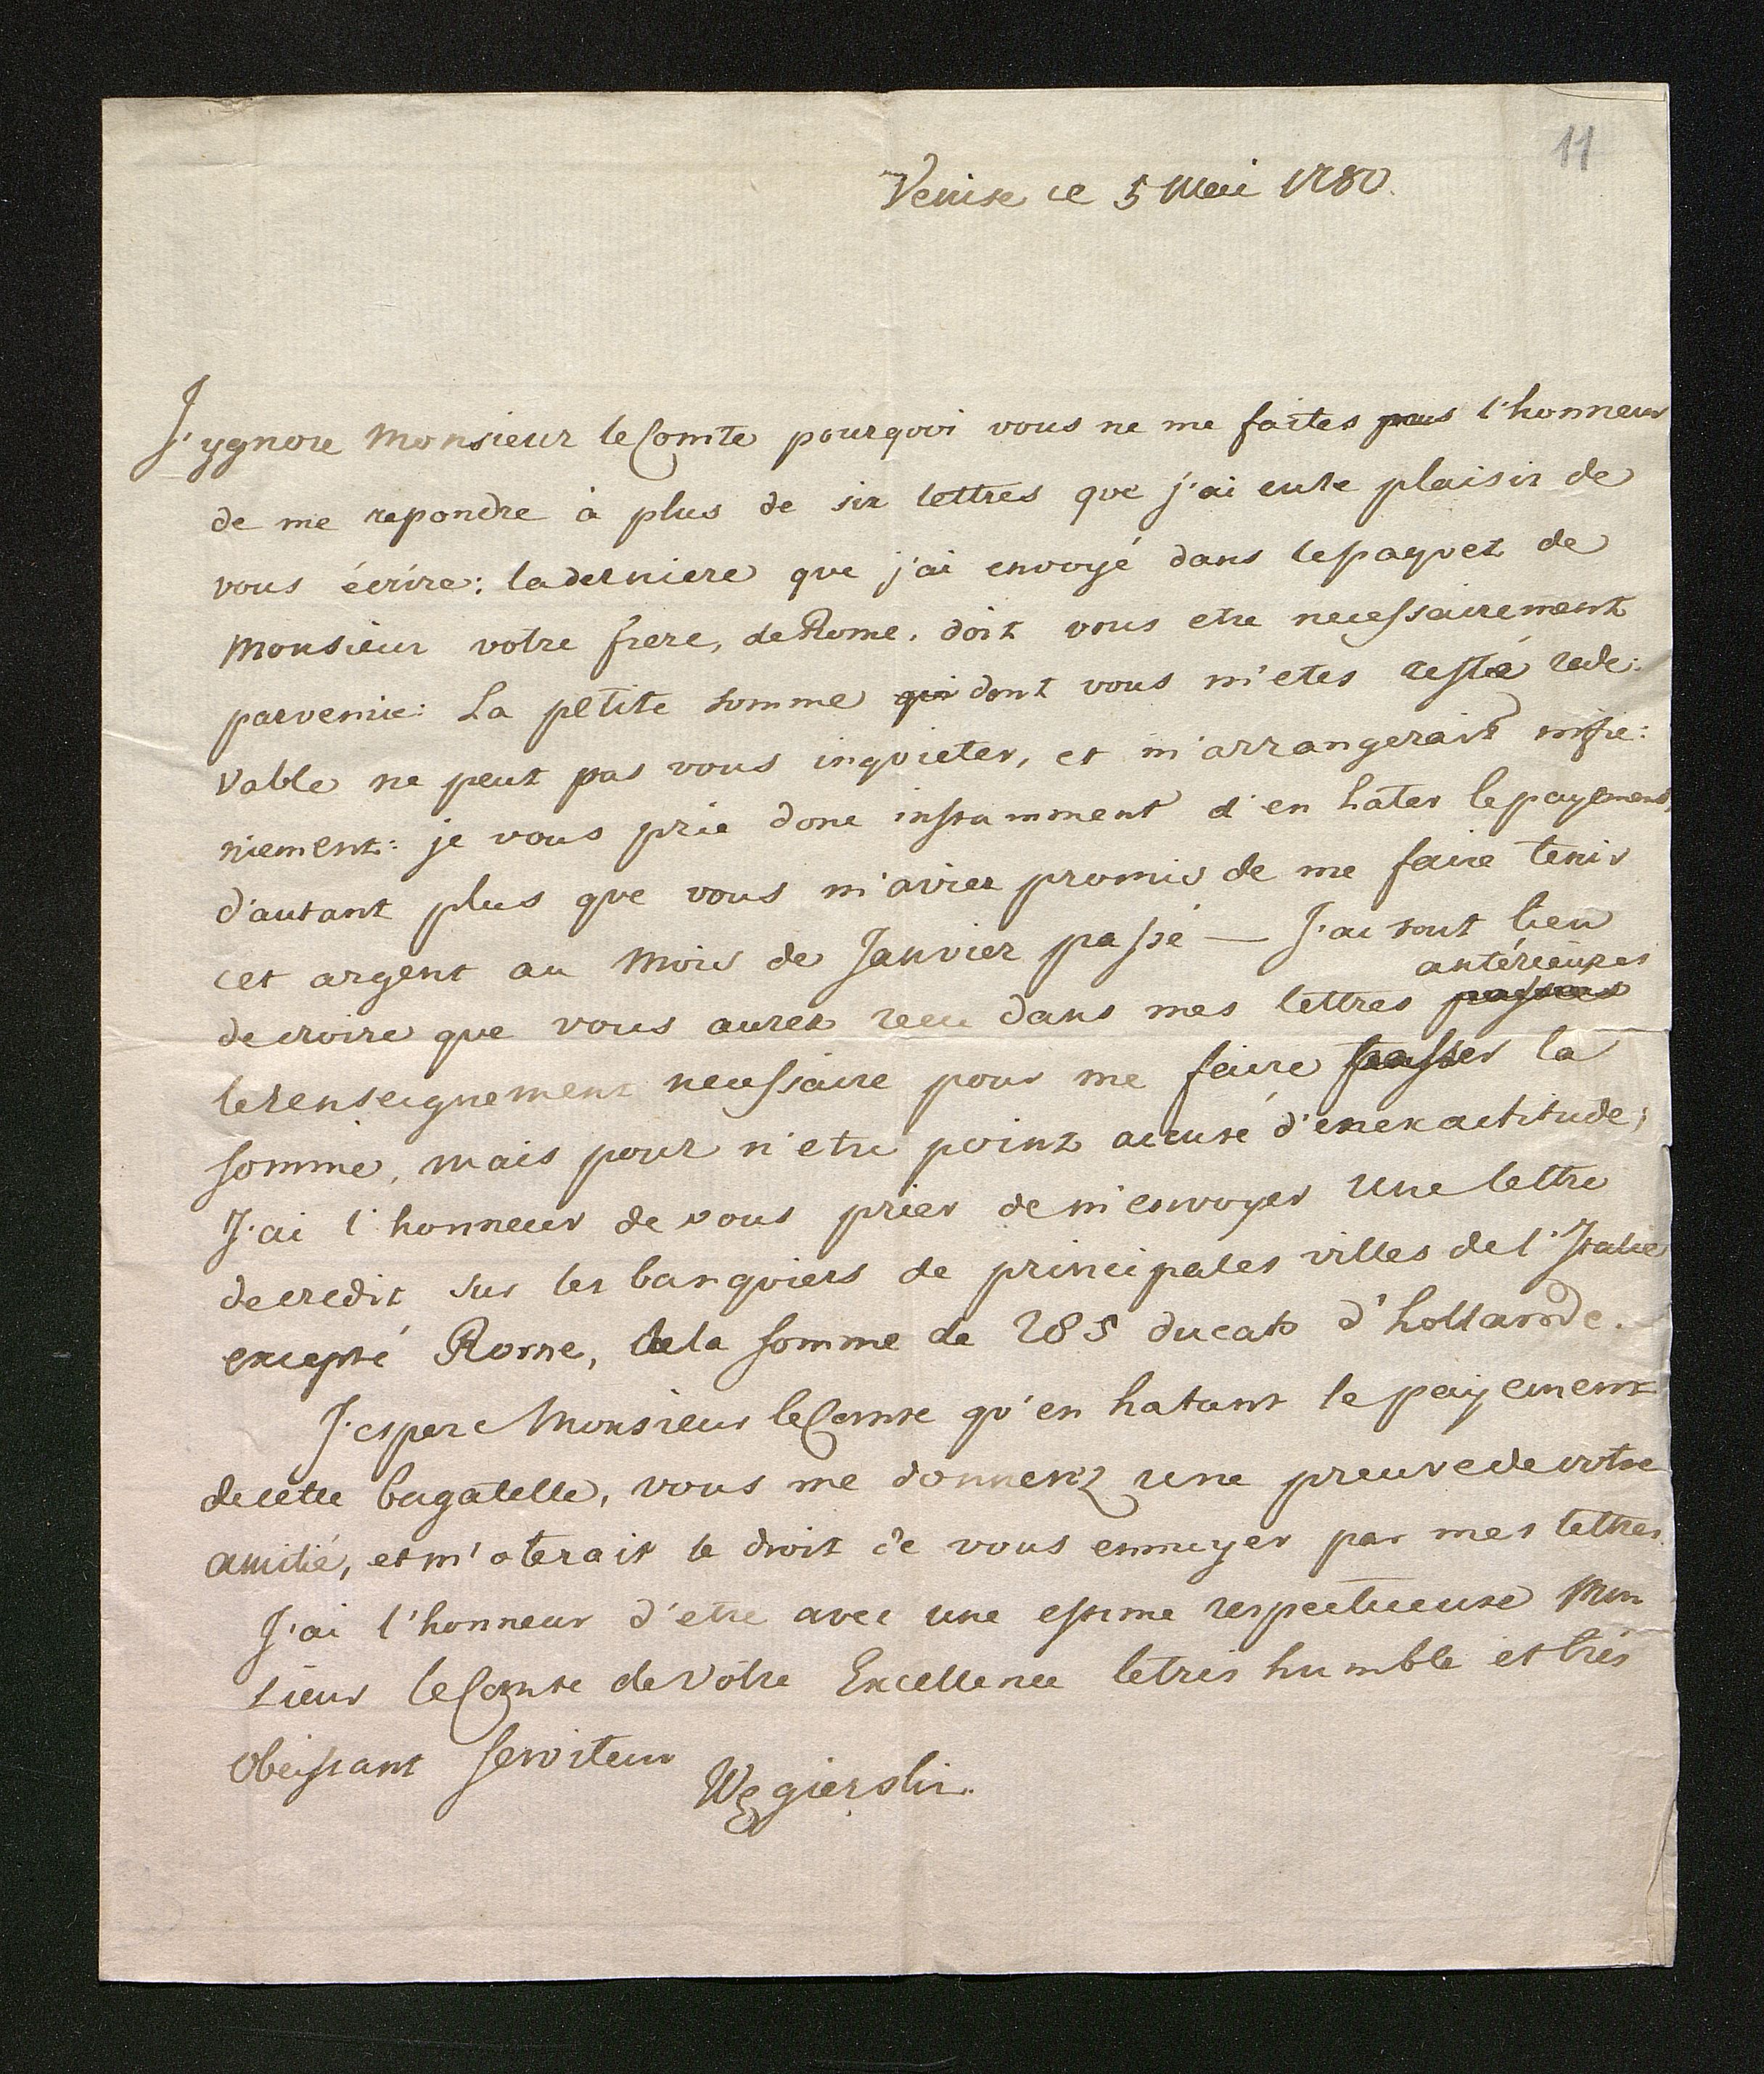 11
Venise ce 5 Mai 1780.
J'ygnore Monsieur le Comte pourqoi vous ne me faites pas l'honneur
de me repondre à plus de six lettres que j'ai eu le plaisir de
vous écrire: la derniere que j'ai envoyé dans le paquet de
Monsieur votre frere, de Rome, doit vous etre necessairement
parvenue: La petite somme qui dont vous m'etes resté rede:
vable ne peut pas vous inquieter, et m'arrangerait infie:
niement: je vous prie donc instamment d'en hater le payement,
d'autant plus que vous m'aviez promis de me faire tenir
cet argent au Mois de Janvier passé — J'ai tout lieu
antérieures
de croire que vous aurez recu dans mes lettres passées
le renseignement necessaire pour me faire passer la
somme, mais pour n'etre point accusé d'enexactitude;
J'ai l'honneur de vous prier de m'envoyer Une lettre
de credit sur les banquiers de principales villes de l'Italie
excepté Rome, de la somme de 285 ducats d'hollande.
J'espere Monsieur le Comte qu'en hatant le payement
de cette bagatelle, vous me donnerez une preuve de votre
amitié, et m'oterait le droit de vous ennuyer par mes lettres.
J'ai l'honneur d'etre avec une estime respectueuse Mon
sieur le Comte de Votre Excellence le tres humble et très
obeissant serviteur
Węgierski.